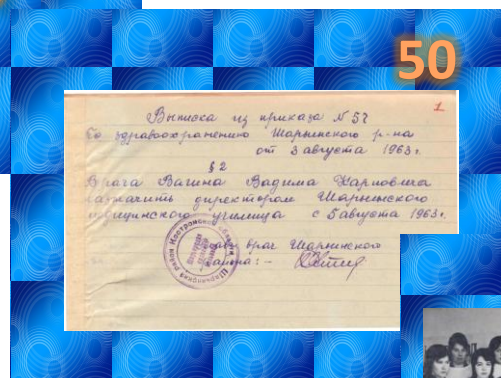 50
1
Выписка из приказа N 57
по здравоохранению Шарьинского р-на
от 3 августа 1963 г.
§ 2
Врача Вагина Вадима Карповича
назначить директором Шарьинского
медицинского училища с 5 августа 1963 г.
Глав. врач Шарьинского
района: –